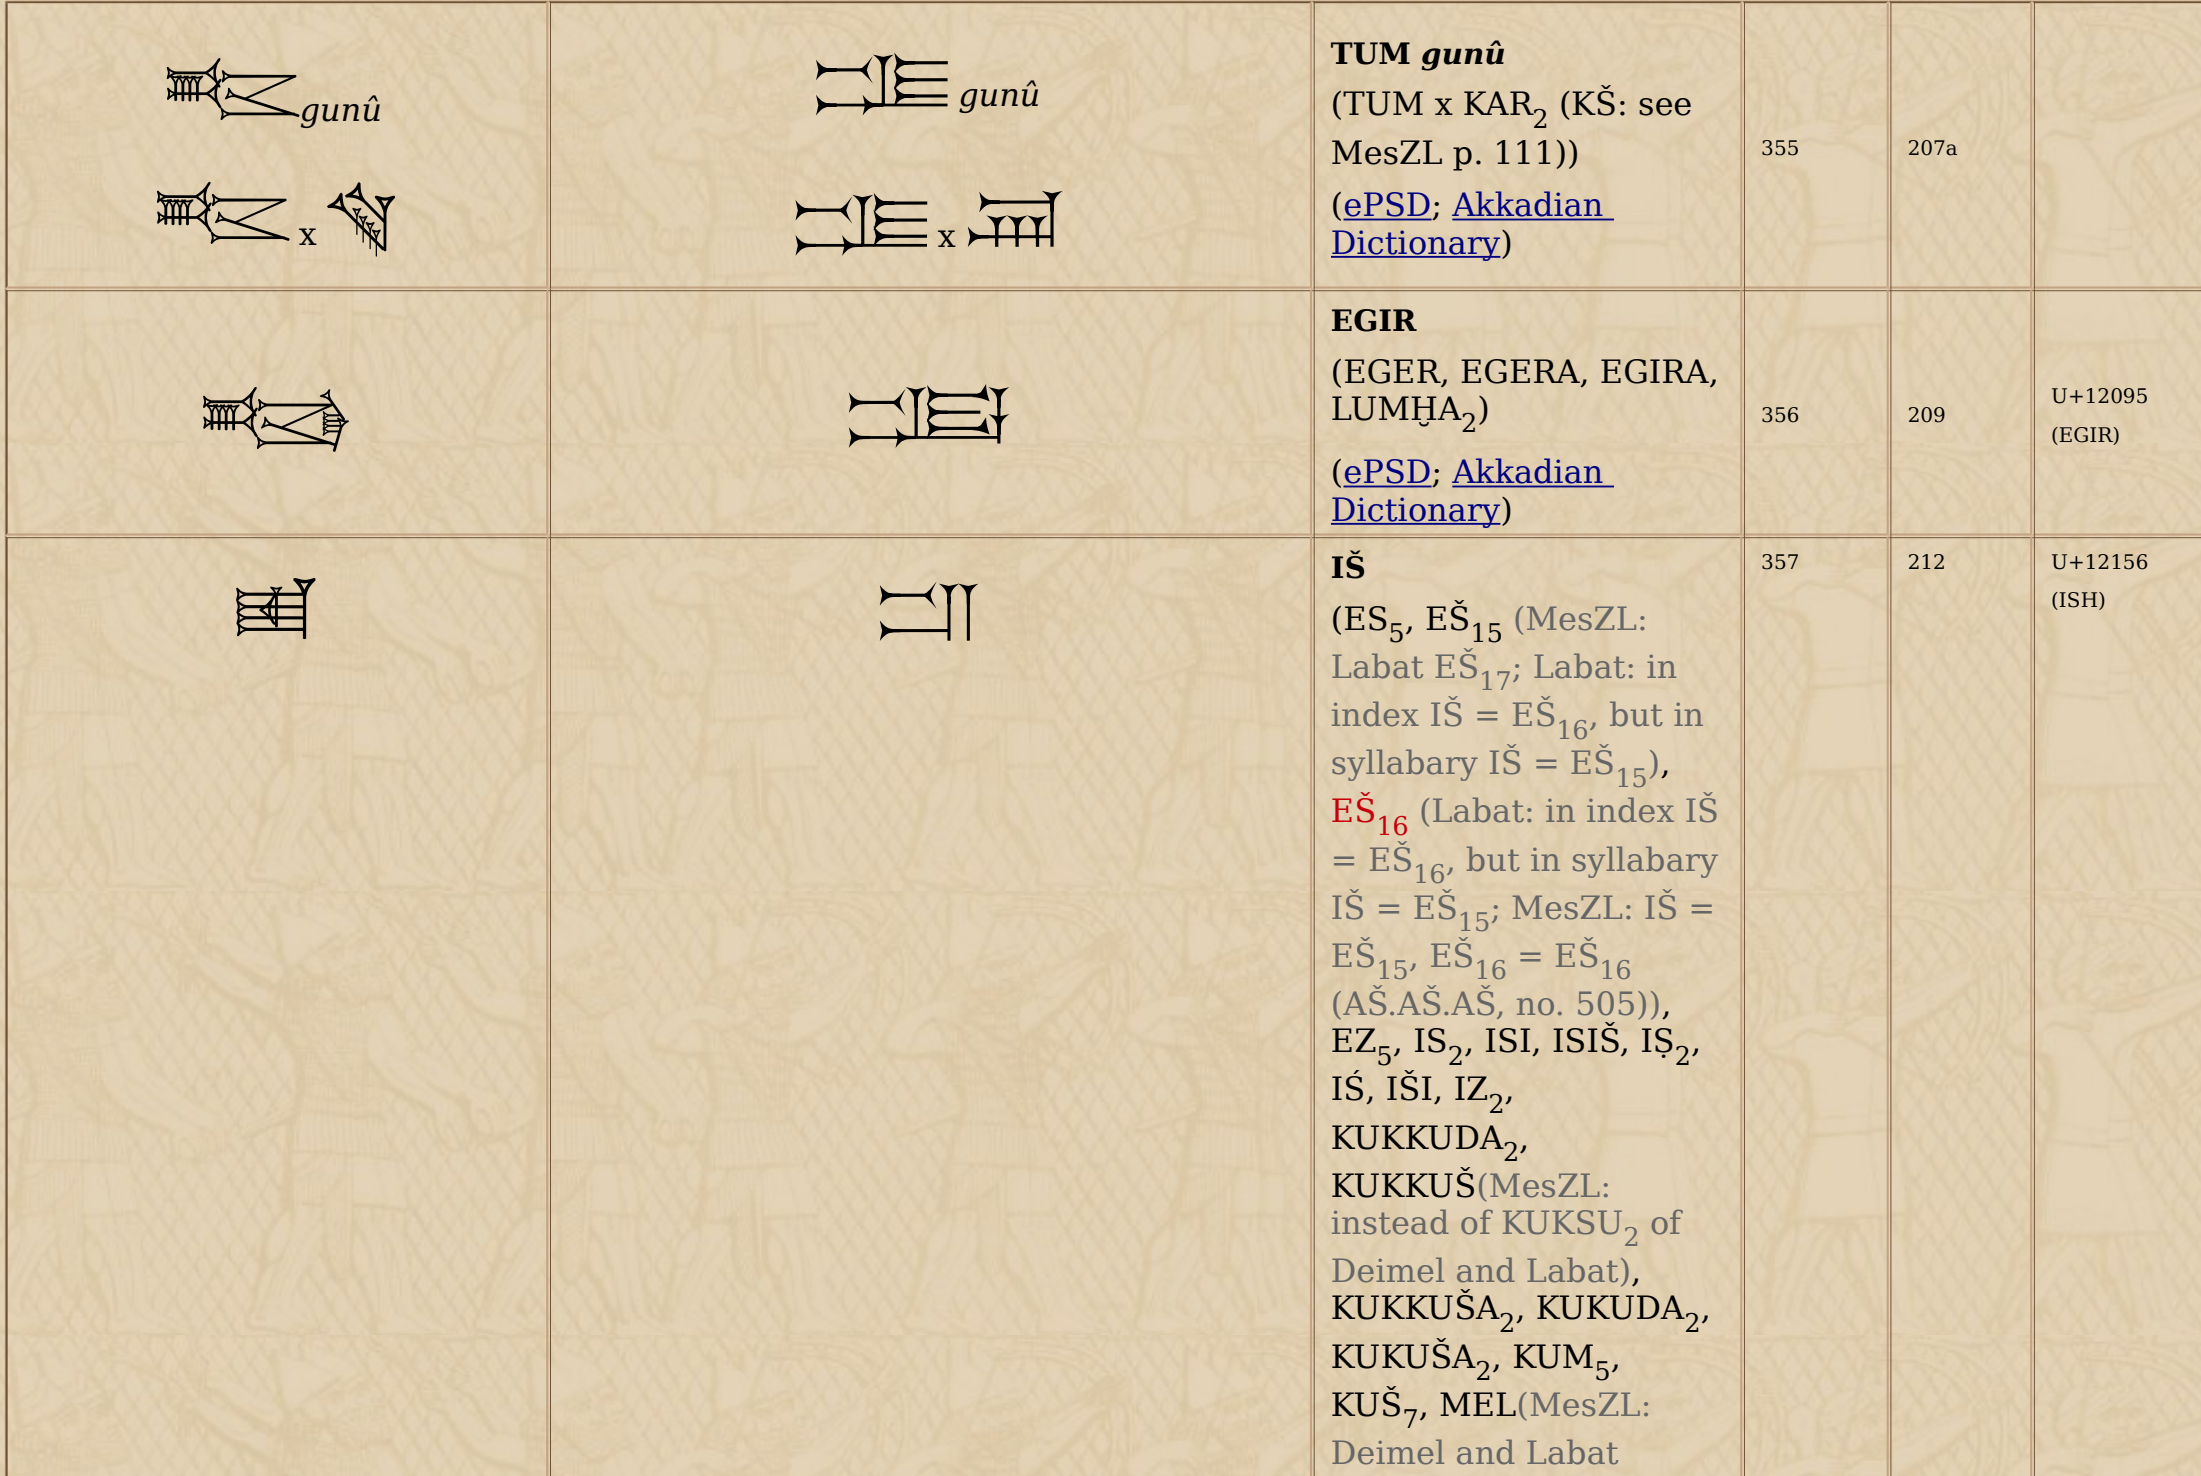 𒁺 gunû
𒁺 x 𒃸
𒁺 gunû
𒁺 x 𒃸
TUM gunû
(TUM x KAR₂ (KŠ: see
MesZL p. 111))
(ePSD; Akkadian
Dictionary)
355
207a
𒂕
𒂕
EGIR
(EGER, EGERA, EGIRA,
LUMḪA₂)
(ePSD; Akkadian
Dictionary)
356
209
U+12095
(EGIR)
𒅖
𒅖
IŠ
(ES₅, EŠ₁₅ (MesZL:
Labat EŠ₁₇; Labat: in
index IŠ = EŠ₁₆, but in
syllabary IŠ = EŠ₁₅),
EŠ₁₆ (Labat: in index IŠ
= EŠ₁₆, but in syllabary
IŠ = EŠ₁₅; MesZL: IŠ =
EŠ₁₅, EŠ₁₆ = EŠ₁₆
(AŠ.AŠ.AŠ, no. 505)),
EZ₅, IS₂, ISI, ISIŠ, IṢ₂,
IŚ, IŠI, IZ₂,
KUKKUDA₂,
KUKKUŠ(MesZL:
instead of KUKSU₂ of
Deimel and Labat),
KUKKUŠA₂, KUKUDA₂,
KUKUŠA₂, KUM₅,
KUŠ₇, MEL(MesZL:
Deimel and Labat
357
212
U+12156
(ISH)